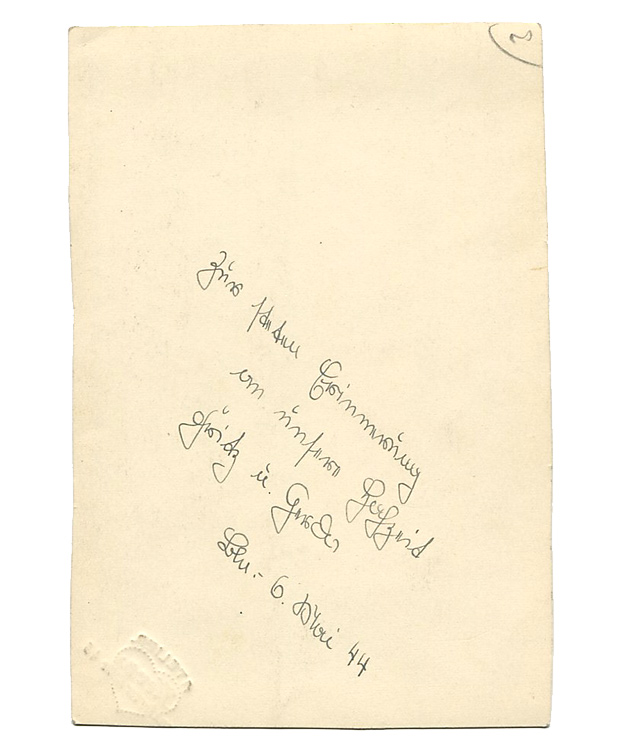 2
Zur steten Erinnerung
an unsere Hochzeit
Fritz u. Gerda
Bln.- 6. Mai 44